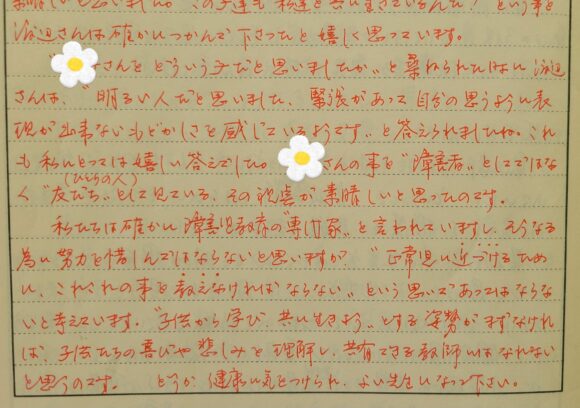 素晴しかと思いました。この子達も私達と共に生きているんだ！という事を
渡辺さんは確かにつかんで下さったと嬉しく思っています。
さんをどういう子だと思いましたか〟と尋ねられたければ 渡辺
さんは、〝明るい人だと思いました、緊張があって自分の思うように表
現が出来ないもどかしさを感じているようです〟と答えられましたね。これ
も私にとっては嬉しい答えでした。 さんの事を〝障害者〟としてではな
く〝友だち(ひとりの人)〟として見ている、その視点が素晴しいと思ったのです。
私たちは確かに障害児教育の〝専門家〟と言われていますし、そうなる
為に努力を惜しんではならないと思いますが、〝正常児に近づけるため
に、これこれの事を教えなければならない〟という思いであってはならな
いと考えています。〝子供から学び、共に生きよう〟とする姿勢がまずなけれ
ば、子供たちの喜びや悲しみを理解し、共有できる教師にはなれない
と思うのです。 どうか、健康に気をつけられ、よい先生になって下さい。